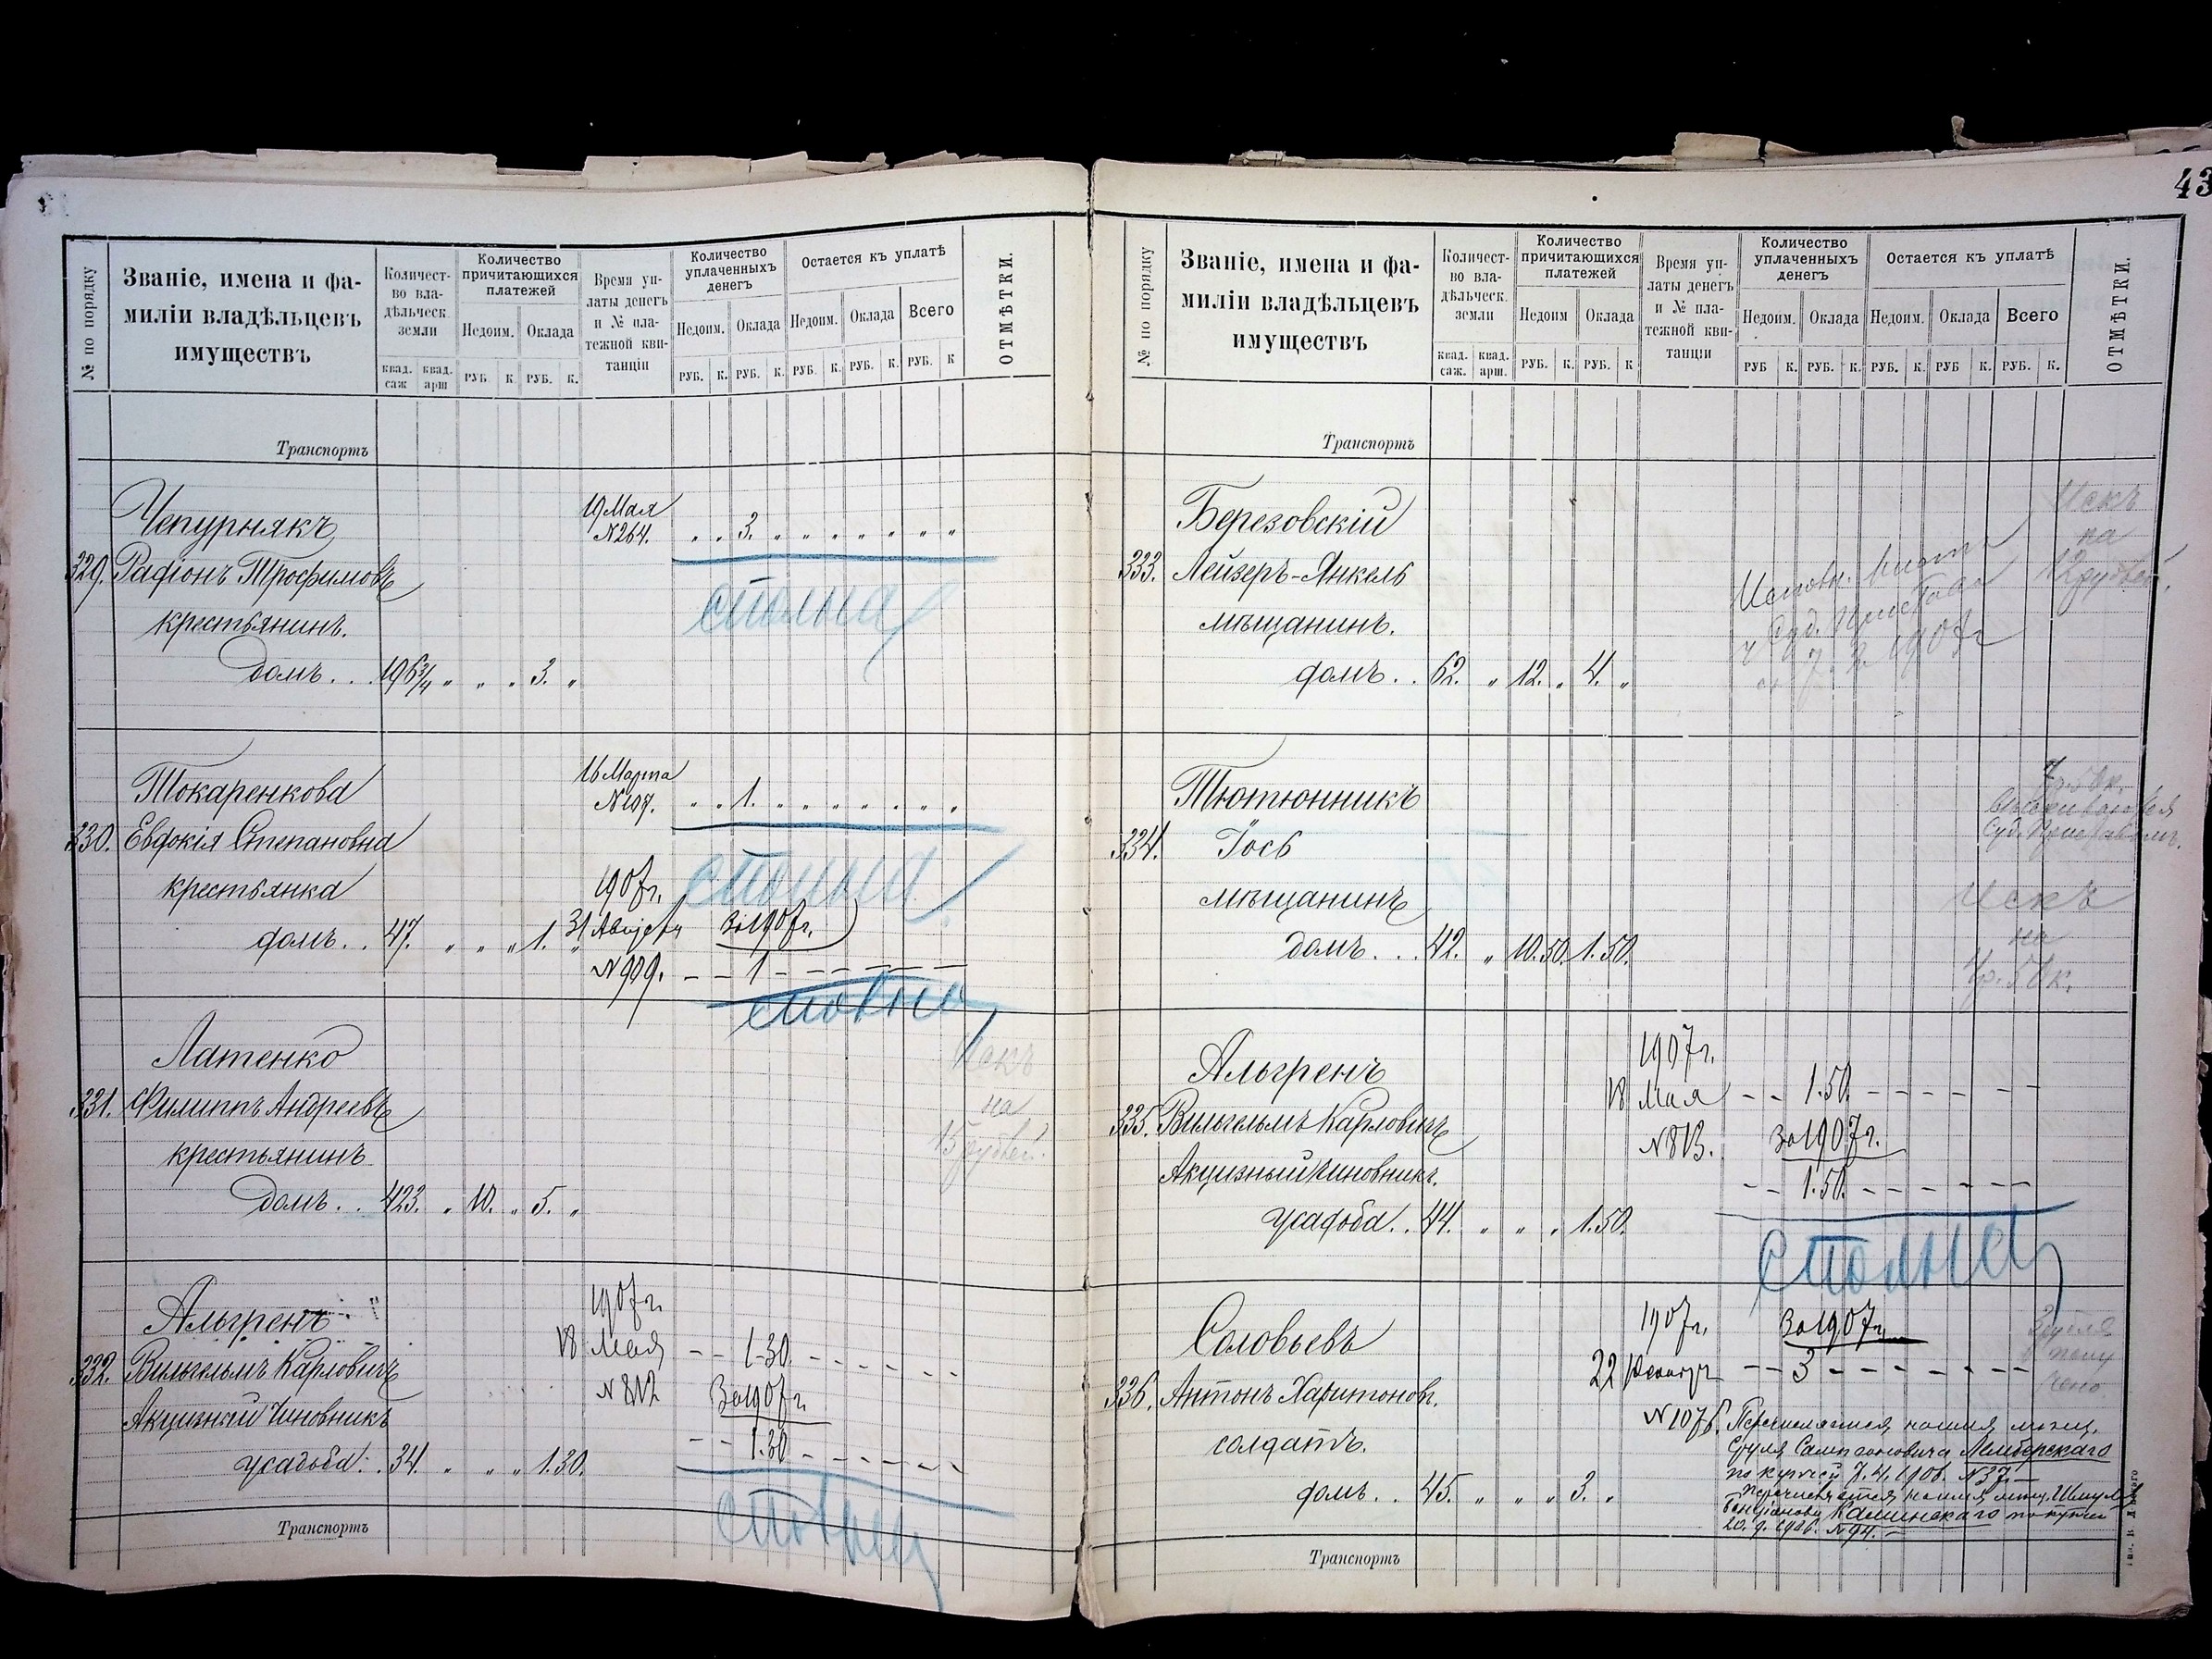 43
№ по порядку
Званіе, имена и фа-
миліи владѣльцевъ
имуществъ
Количест-
во вла-
дѣльческ.
земли
квад. саж
квад. арш
Количество
причитающихся
платежей
Недоим.
Оклада
РУБ.
К.
РУБ.
К.
Время уп-
латы денегъ
и № пла-
тежной кви-
танціи
Количество
уплаченныхъ
денегъ
Недоим.
Оклада
РУБ.
К.
РУБ.
К.
Остается къ уплатѣ
Недоим.
Оклада
Всего
РУБ.
К.
РУБ.
К.
РУБ.
К
ОТМѢТКИ.
Транспортъ
Чепурнякъ
19 Мая
№264. " " 3. " " " " " " "
329. Рафіонъ Трофимовъ
сполна
крестьянинъ.
домъ. . . 196 3/4 " " " 3. "
Токаренкова
16 Марта
№107. " " 1. " " " " " " "
330. Евдокія Степановна
сполна
крестьянка
1907г.
домъ. . 47. " " " 1. "
31 Августа За 1907г.
№909. - - 1 - - - - - - -
сполна
Латенко
Искъ
331. Филиппъ Андреевъ
на
15 рублей.
крестьянинъ
домъ. . 423. " 10. " 5. "
Альгренъ
1907г.
18 Мая - - 1-30. - - - - - -
332. Вильгельмъ Карловичъ
№812 За 1907г.
Акцизный Чиновникъ
- - 1.30 - - - - - -
усадьба. . 34. " " " 1.30.
сполна
Транспортъ
№ по порядку
Званіе, имена и фа-
миліи владѣльцевъ
имуществъ
Количест-
во вла-
дѣльческ.
земли
квад. саж.
квад. арш.
Количество
причитающихся
платежей
Недоим
Оклада
РУБ.
К.
РУБ.
К
Время уп-
латы денегъ
и № пла-
тежной кви-
танціи
Количество
уплаченныхъ
денегъ
Недоим.
Оклада
РУБ
К.
РУБ.
К.
Остается къ уплатѣ
Недоим.
Оклада
Всего
РУБ.
К.
РУБ
К.
РУБ.
К.
ОТМѢТКИ.
Транспортъ
Березовскій
Искъ
на
12 рублей.
333. Лейзеръ-Янкель
мѣщанинъ.
Исполн. листъ
у Суд. Пристава
1907г
домъ. . 62. " 12. " 4. "
Тютюнникъ
7р. 50к.
Суд. Приставомъ.
334. Іось
мѣщанинъ
Искъ
на
домъ. . . 42. " 10.50. 1.50.
Альгренъ
1907г.
18 Мая - - 1.50. - - - - - -
335. Вильгельмъ Карловичъ
№813. За 1907г.
Акцизный Чиновникъ.
- - 1.50. - - - - - -
усадьба. . 44. " " " 1.50.
сполна
Соловьевъ
1907г. За 1907г.
22 Декабр - - 3 - - - - - - -
336. Антонъ Харитоновъ.
№1076. Перечисляется на имя мѣщ.
солдатъ.
по купчей 7.4.1906. №37.
домъ. . 45. " " " 3. "
Перечисляется на имя мѣщ.
Каминскаго по купчей
№94.
Транспортъ